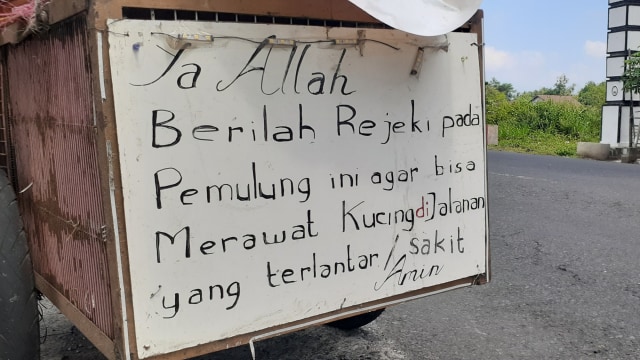 Ya Allah
Berilah Rejeki pada
Pemulung ini agar bisa
Merawat Kucing di Jalanan
yang terlantar / sakit
Amin